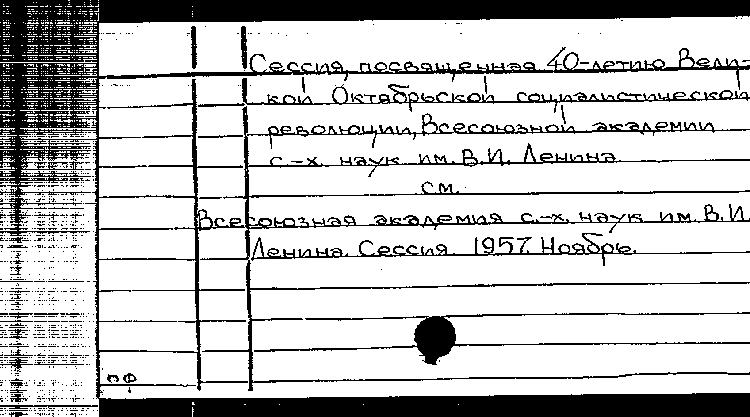 Сессия, посвященная 40-летию Вели-
кой Октябрьской социалистической
революции, Всесоюзной академии
с.-х. наук им. В.И. Ленина
см.
Всесоюзная академия с.-х. наук им. В.И.
Ленина. Сессия. 1957. Ноябрь.